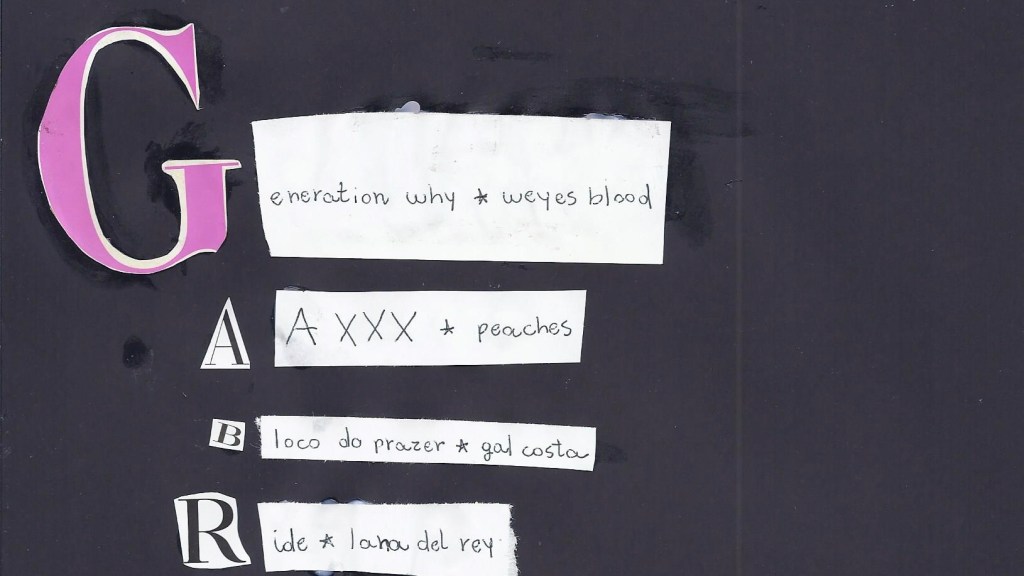 Generation why * weyes blood
A A XXX * peaches
Bloco do prazer * gal costa
Ride * lana del rey